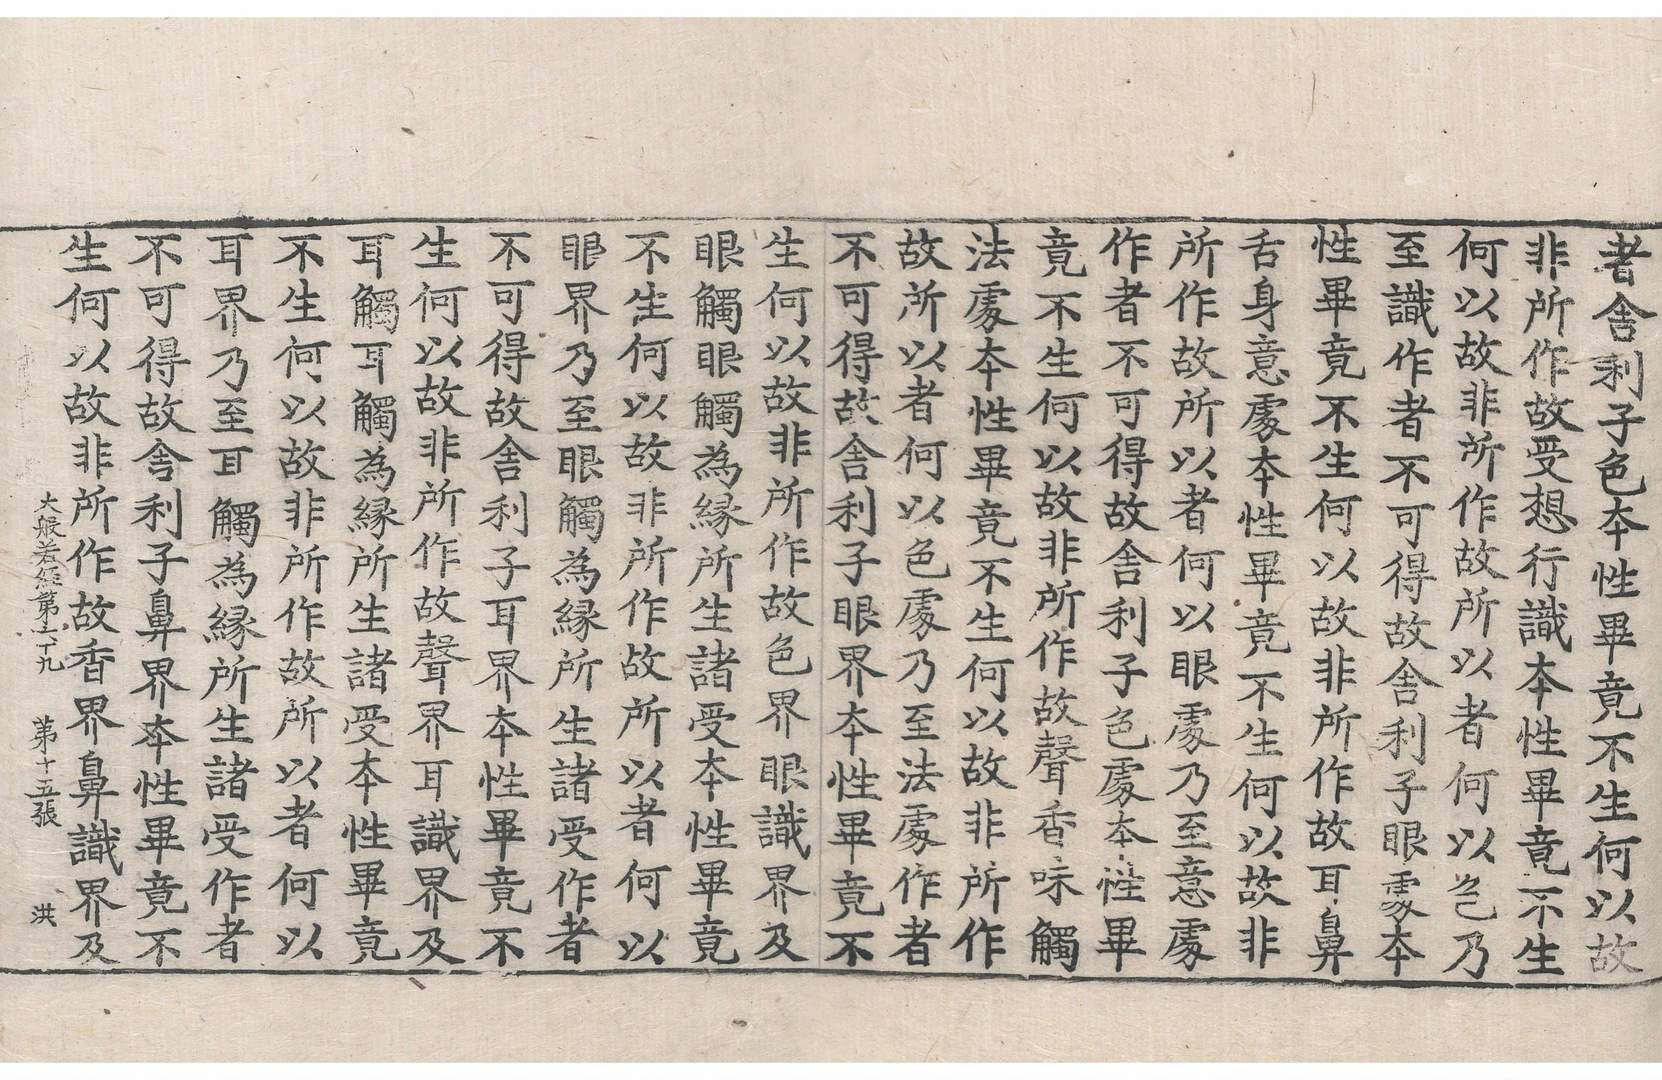 者舍利子色本性畢竟不生何以故
非所作故受想行識本性畢竟不生
何以故非所作故所以者何以色乃
至識作者不可得故舍利子眼處本
性畢竟不生何以故非所作故耳鼻
舌身意處本性畢竟不生何以故非
所作故所以者何以眼處乃至意處
作者不可得故舍利子色處本性畢
竟不生何以故非所作故聲香味觸
法處本性畢竟不生何以故非所作
故所以者何以色處乃至法處作者
不可得故舍利子眼界本性畢竟不
生何以故非所作故色界眼識界及
眼觸眼觸為縁所生諸受本性畢竟
不生何以故非所作故所以者何以
眼界乃至眼觸為縁所生諸受作者
不可得故舍利子耳界本性畢竟不
生何以故非所作故聲界耳識界及
耳觸耳觸為縁所生諸受本性畢竟
不生何以故非所作故所以者何以
耳界乃至耳觸為縁所生諸受作者
不可得故舍利子鼻界本性畢竟不
生何以故非所作故香界鼻識界及
大般若經第六十九 第十五張 洪